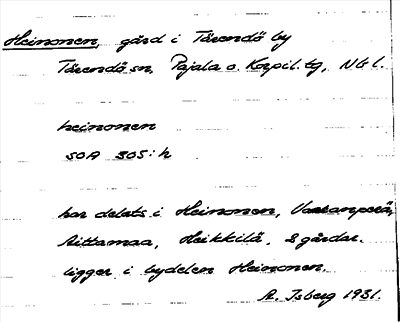 Heinonen, gård i Tärendö by
Tärendö sn, Pajala o. Korpil. tg, Nb l.
heinonen
SOA 305:h
har delats i Heinonen, Vaaranperä,
Aittamaa, Heikkilä, 8 gårdar.
ligger i bydelen Heinonen.
A. Isberg 1931.